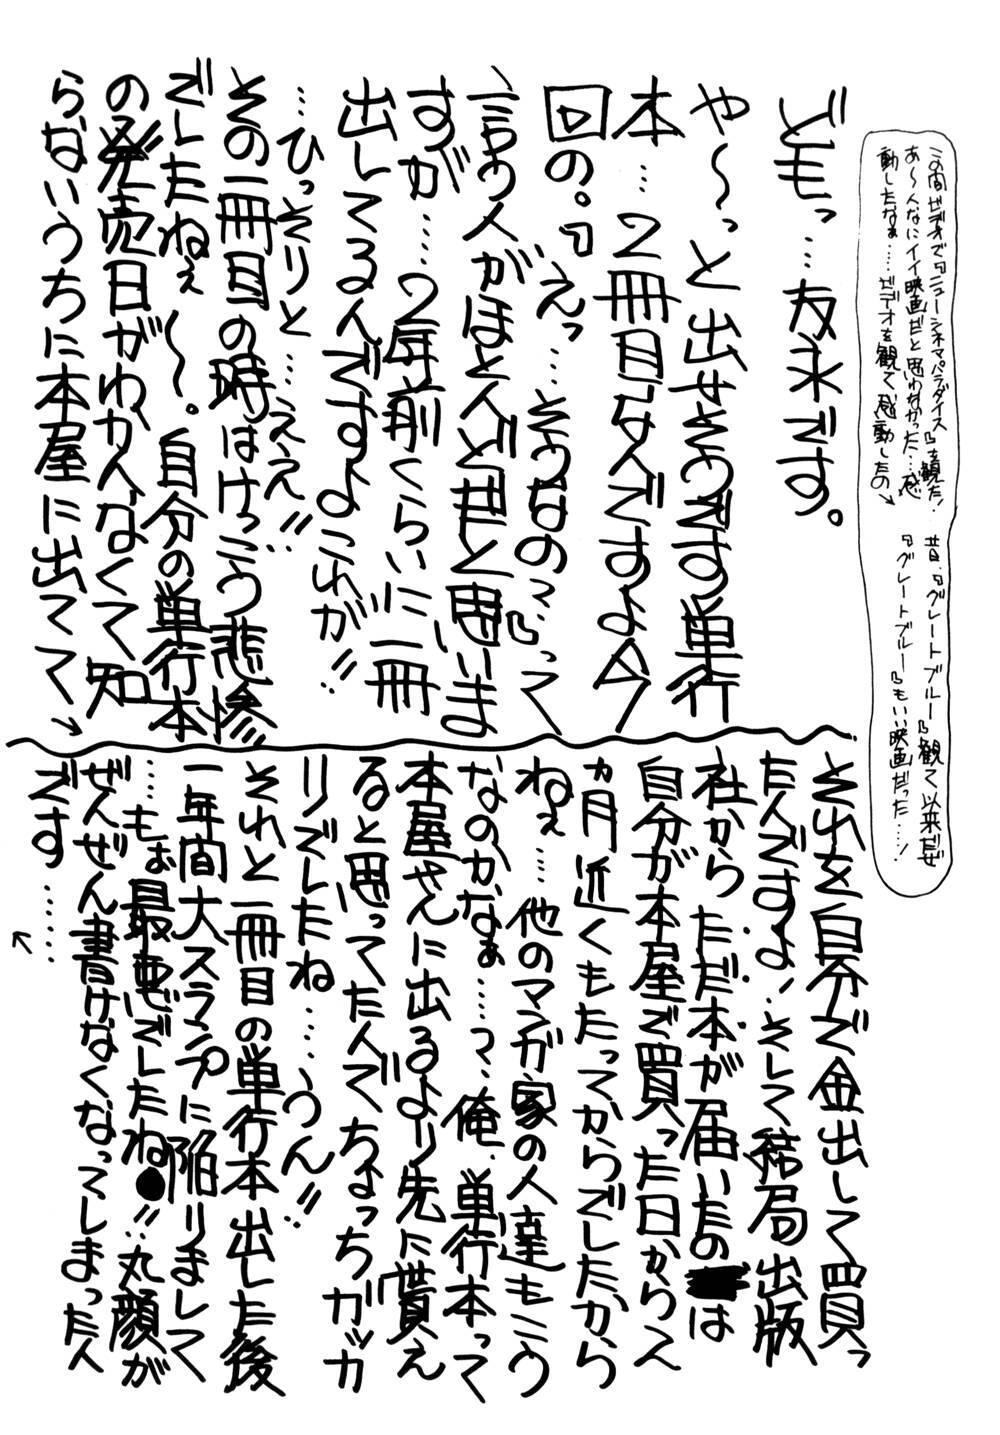 この間ビデオで『ニューシネマパラダイス』を観た!
あ〜んなにイイ映画だと思わなかった…感
動したなぁ……ビデオを観て感動したの→
昔、『グレートブルー』観て以来だぜ
『グレートブルー』もいい映画だった……!
どもっ…友永です。
や〜っと出せそうです単行
本…2冊目なんですよ今
回の。『えっ……そうなの…?』って
言う人がほとんどだと思いま
すが……2年前くらいに一冊
出してるんですよこれが!!
…ひっそりと……ええ!!
その一冊目の時はけっこう悲惨
でしたねぇ〜。自分の単行本
の発売日がわかんなくて知
らないうちに本屋に出てて→
それを自分で金出して買っ
たんですよ、そして結局出版
社からただ本が届いたのは
自分が本屋で買った日から一
ヵ月近くもたってからでしたから
ねぇ……他のマンガ家の人達もこう
なのかなぁ……?、俺、単行本って
本屋さんに出るより先に貰え
ると思ってたんでちょっちガッカ
リでしたね……うん!!
それと一冊目の単行本出した後
一年間大スランプに陥りまして
…もぉ最悪でしたね!!丸顔が
ぜんぜん書けなくなってしまったん
です……